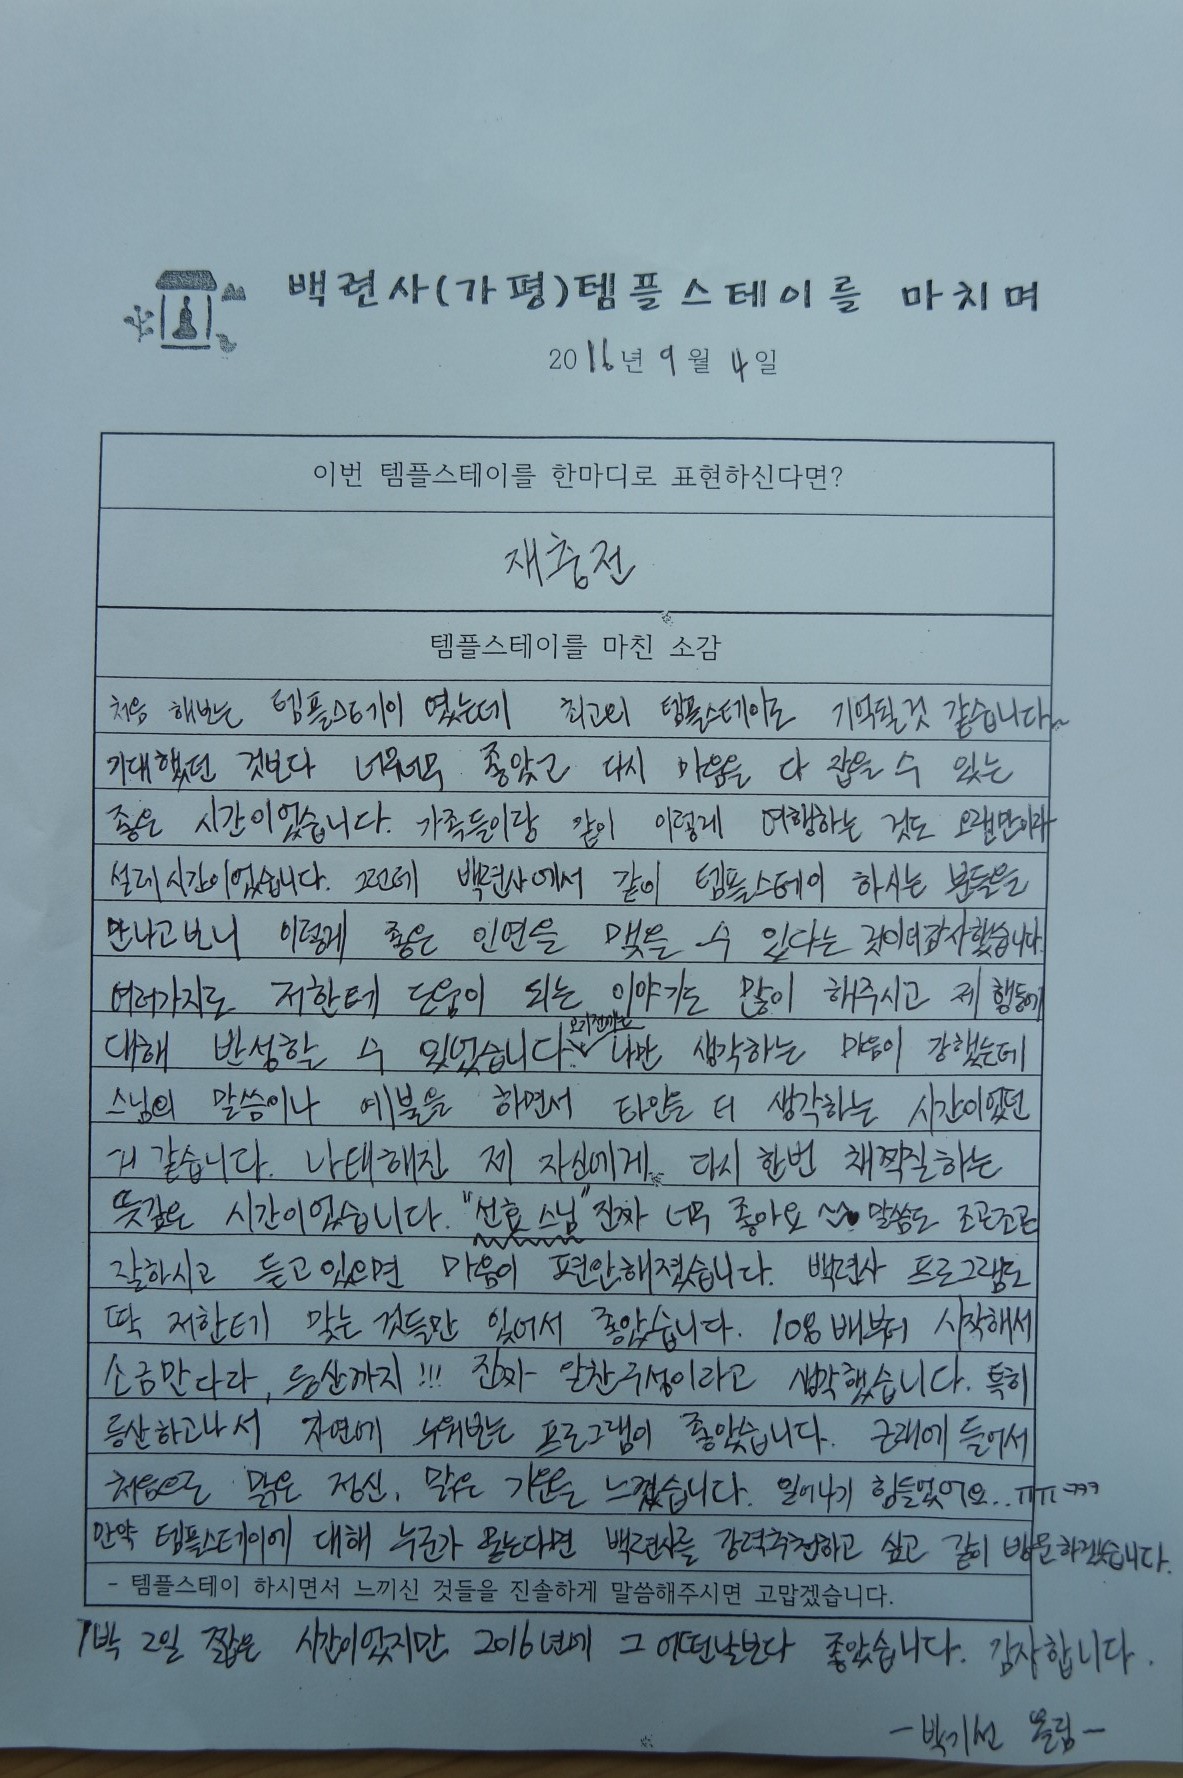 백련사(가평)템플스테이를 마치며
2016년 9월 4일
이번 템플스테이를 한마디로 표현하신다면?
재충전
템플스테이를 마친 소감
처음 해보는 템플스테이 였는데 최고의 템플스테이로 기억될것 같습니다~
기대했던 것보다 너무너무 좋았고 다시 마음을 다 잡을 수 있는
좋은 시간이었습니다. 가족들이랑 같이 이렇게 여행하는 것도 오랜만이라
설레 시간이었습니다. 그런데 백련사에서 같이 템플스테이 하시는 분들을
만나고보니 이렇게 좋은 인연을 맺을 수 있다는 것이더감사했습니다.
여러가지로 저한테 도움이 되는 이야기도 많이 해주시고 제 행동에
대해 반성할 수 있었습니다. 오기전에는 나만 생각하는 마음이 강했는데
스님의 말씀이나 예불을 하면서 타인을 더 생각하는 시간이었던
거 같습니다. 나태해진 제 자신에게.. 다시 한번 채찍질하는
뜻깊은 시간이었습니다. "선효 스님" 진짜 너무 좋아요 ^^♥ 말씀도 조곤조곤
잘하시고 듣고있으면 마음이 편안해졌습니다. 백련사 프로그램도
딱 저한테 맞는 것들만 있어서 좋았습니다. 108배부터 시작해서
소금만다라, 등산까지!!! 진짜 알찬구성이라고 생각했습니다. 특히
등산하고나서 자연에 누워보는 프로그램이 좋았습니다. 근래에 들어서
처음으로 맑은 정신, 맑은 기운을 느꼈습니다. 일어나기 힘들었어요..ㅠㅠㅋㅋㅋ
만약 템플스테이에 대해 누군가 묻는다면 백련사를 강력추천하고 싶고 같이 방문하겠습니다.
- 템플스테이 하시면서 느끼신 것들을 진솔하게 말씀해주시면 고맙겠습니다.
1박 2일 짧은 시간이었지만 2016년에 그 어떤날보다 좋았습니다. 감사합니다.
-박기선 올림-